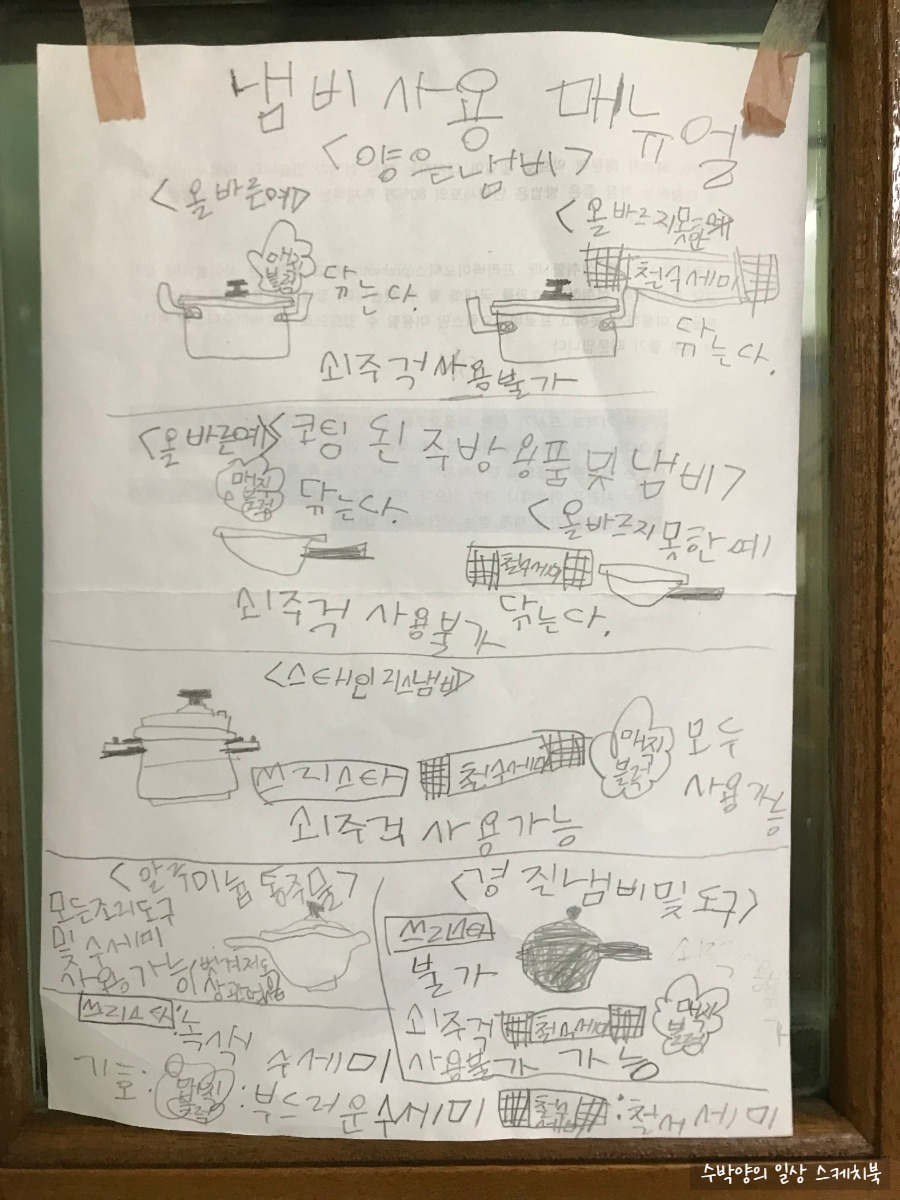 냄비사용 매뉴얼
<양은냄비>
<올바른예>
<올바르지못한예>
매직블럭 닦는다.
철수세미
닦는다.
쇠주걱사용불가
<올바른예>
<코팅 된 주방용품 및 냄비>
매직블럭 닦는다.
<올바르지못한 예>
철수세미
닦는다.
쇠주걱 사용불가
<스테인리스냄비>
쓰리스타 철수세미 매직블럭 모두 사용가능
쇠주걱 사용가능
<알루미늄 통주물>
모든조리도구
및 수세미
사용가능(벗겨져도 상관없음)
<경질냄비및 도구>
쓰리스타
불가
쇠주걱
사용불가
철수세미 매직블럭
가능
기호:
쓰리스타:녹색
수세미
매직블럭:부드러운수세미
철수세미:철수세미
수박양의 일상 스케치북